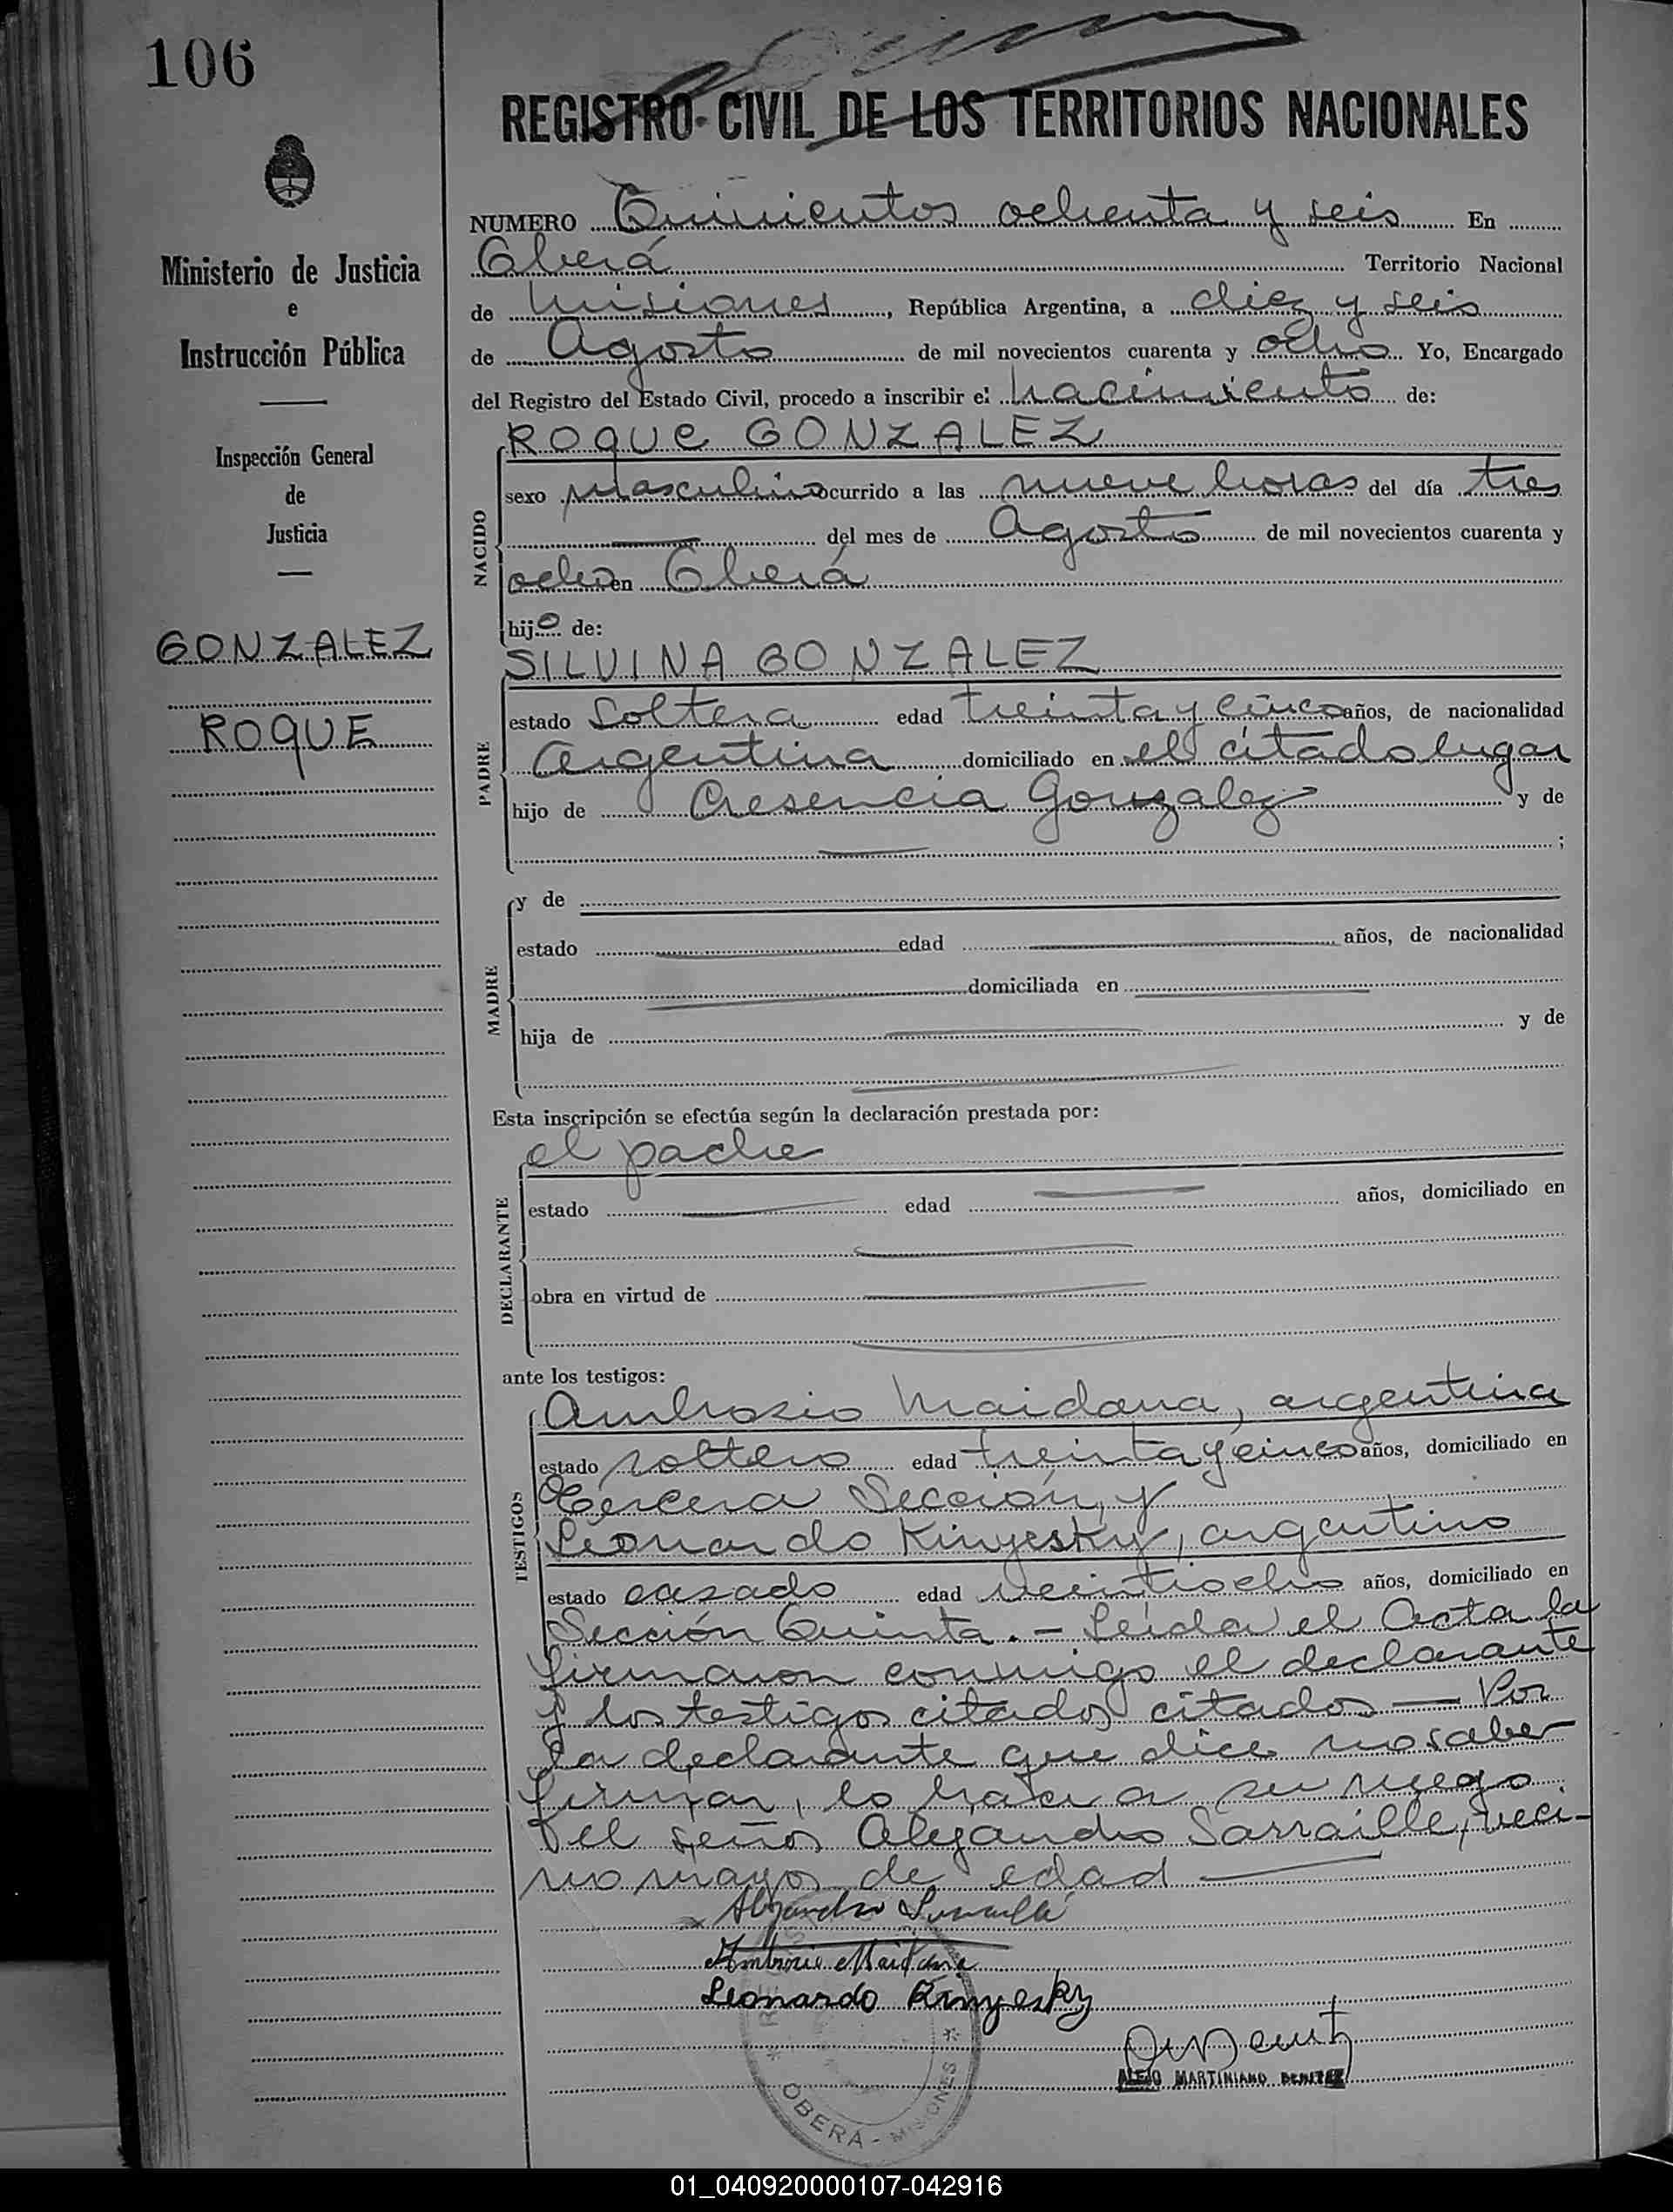 106
REGISTRO CIVIL DE LOS TERRITORIOS NACIONALES
Ministerio de Justicia
e
Instrucción Pública
Inspección General
de
Justicia
GONZALEZ
ROQUE
NUMERO Quinientos ochenta y seis En
Oberá Territorio Nacional
de Misiones, República Argentina, a diez y seis
de Agosto de mil novecientos cuarenta y ocho Yo, Encargado
del Registro del Estado Civil, procedo a inscribir el nacimiento de:
ROQUE GONZALEZ
NACIDO
sexo masculino ocurrido a las nueve horas del día tres
del mes de Agosto de mil novecientos cuarenta y
ocho en Oberá
hijo de:
SILVINA GONZALEZ
PADRE
estado soltera edad treinta y cinco años, de nacionalidad
Argentina domiciliado en el citado lugar
hijo de Cresencia Gonzalez y de
;
MADRE
y de
estado edad años, de nacionalidad
domiciliada en
hija de y de
Esta inscripción se efectúa según la declaración prestada por:
el padre
DECLARANTE
estado edad años, domiciliado en
obra en virtud de
ante los testigos:
TESTIGOS
Ambrosio Maidana, argentina
estado soltero edad treinta y cinco años, domiciliado en
Tercera Sección, y
Leonardo Kinyesky, argentino
estado casado edad veintiocho años, domiciliado en
Sección Quinta. - Leída el Acta la
firmaron conmigo el declarante
y los testigos citados citados — Por
la declarante que dice no saber
firmar, lo hace a su ruego
el señor Alejandro Sarraille, veci-
no mayor de edad
Alejandro Sarraille
Ambrosio Maidana
Leonardo Kinyesky
ALEJO MARTINIANO BENITEZ
OBERA - MISIONES
01_040920000107-042916